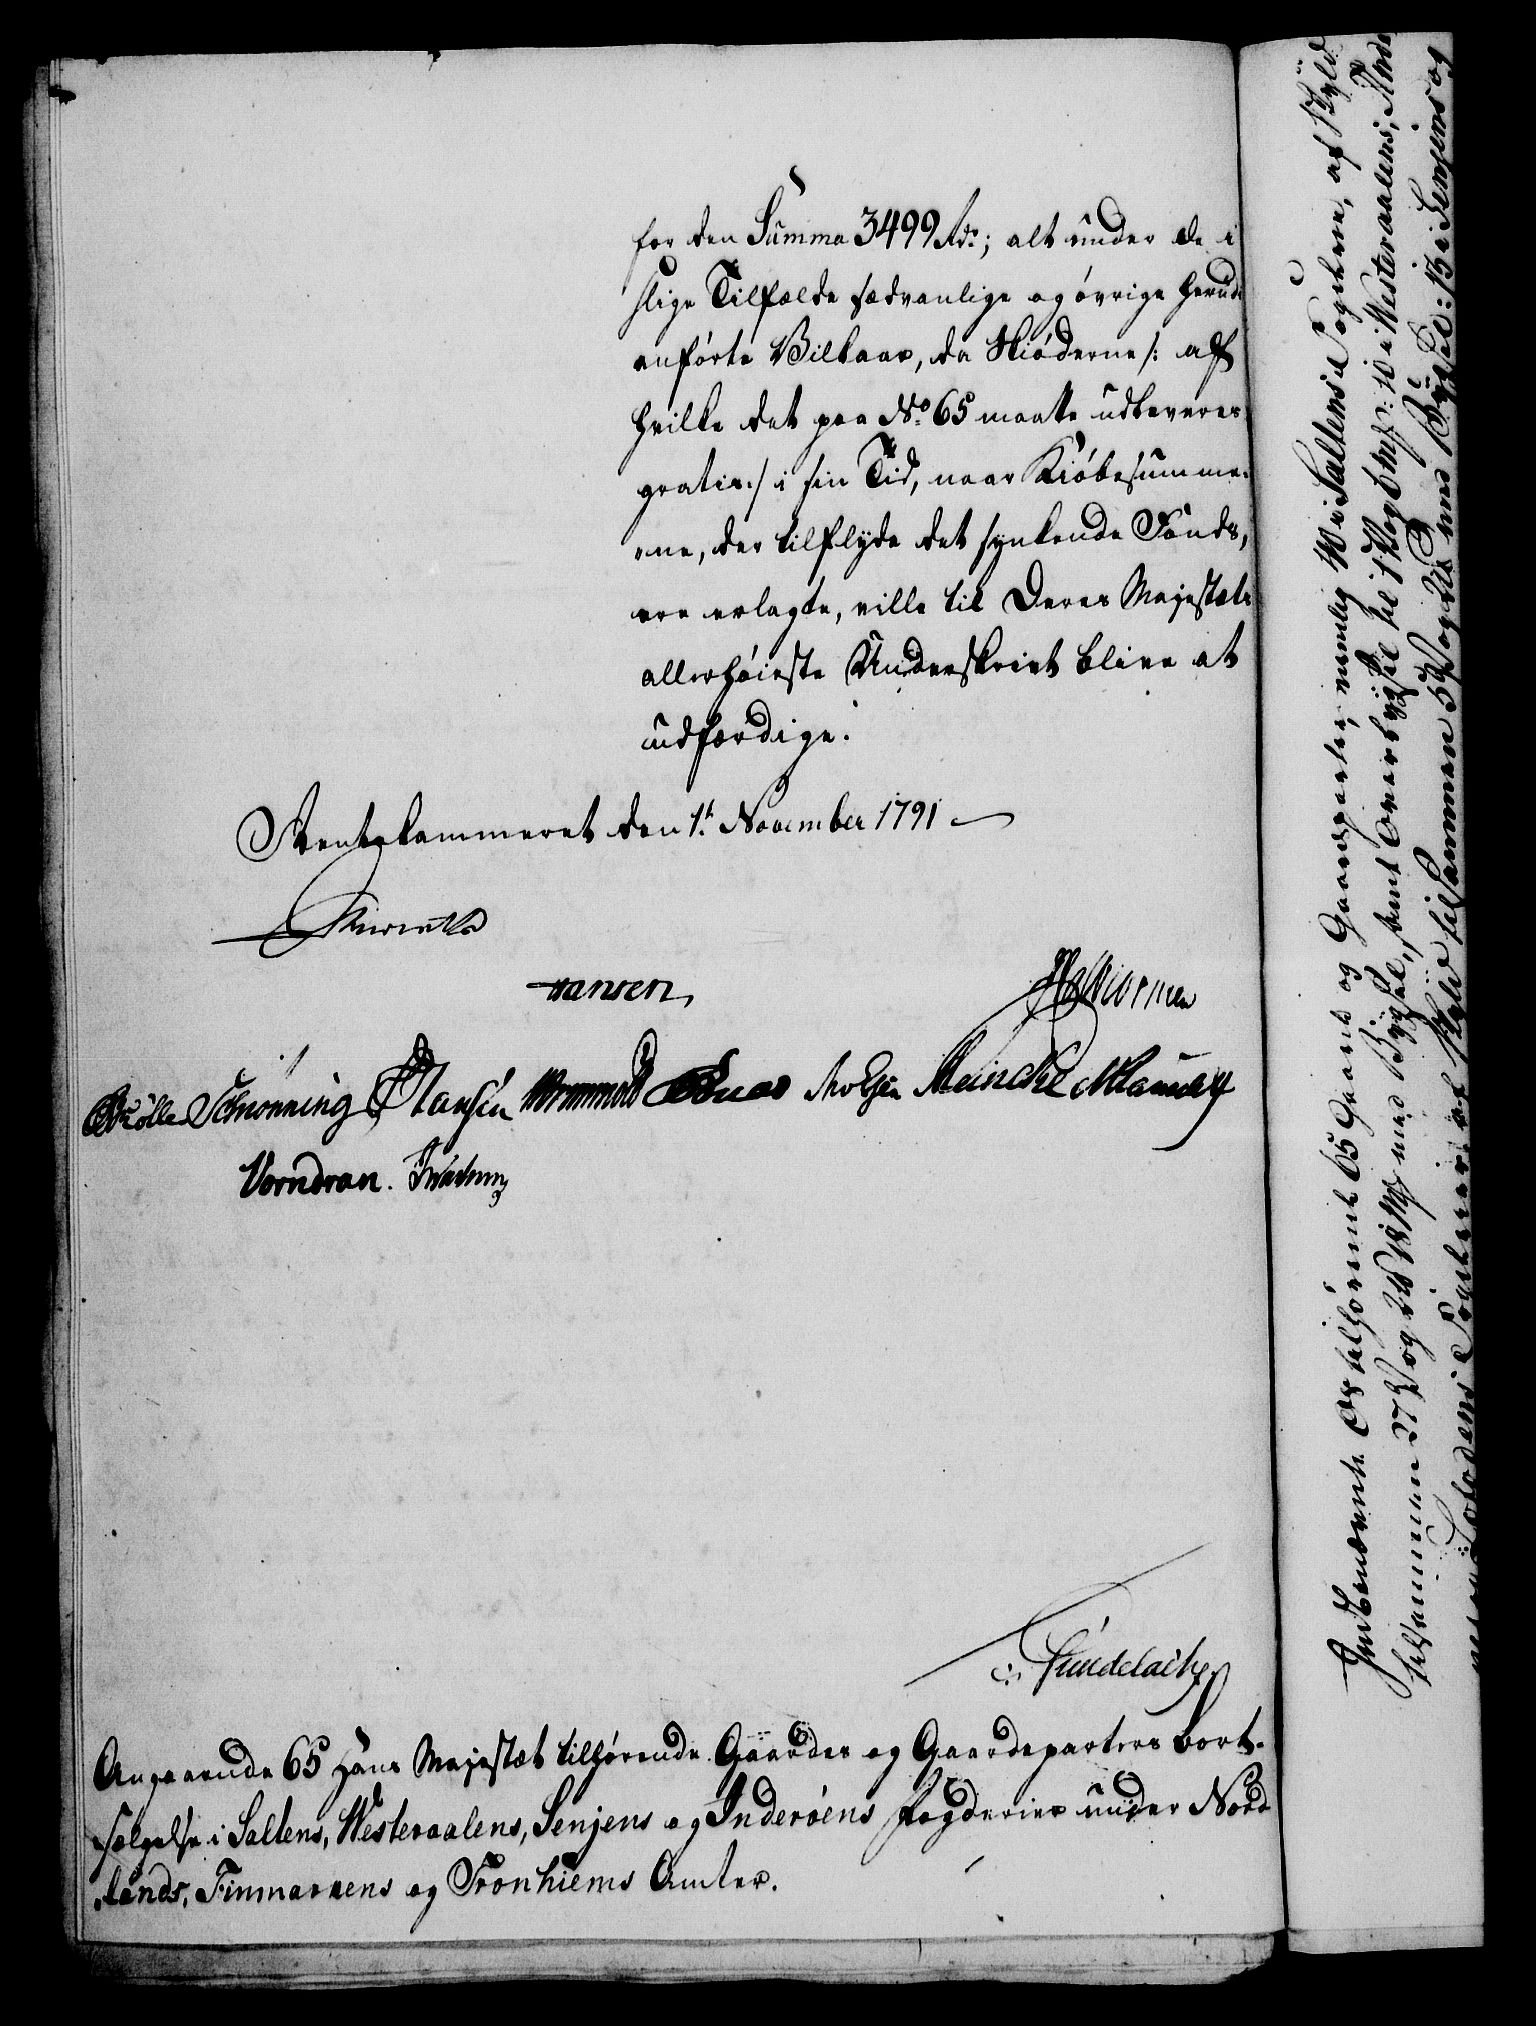 for den Summa 3499 Rdr; alt under de i
slige Tilfælde sædvanlige og övrige herud
anförte Vilkaar, da Skiöderne /: aff
hvilke det paa No 65 maatte udleveres
gratis :/ i sin Tid, naar Kiöbesumme-
rne, der tilflyde det synkende Fonds,
ere erlagte, ville til Deres Majestæts
allerhöieste Underskrivt blive at
udfærdige.
Rentekammeret den 1t November 1791
Hansen
Schönning Hansen Meincke
Vorndran.
Gündelach
Angaaende 65 Hans Majestæt tilhörende Gaardes og Gaardeparters bort-
sælgelse i Saltens, Westeraalens, Senjens og Inderöens Fogderier under Nord
lands, Finmarkens og Tronhiems Amter.
tilhörende 65 Gaarde og Gaardparter, nemlig 40 i Saltens Fogderie, af Skyld
tilsammen 27 og 18 med Bÿgsel, samt Overbÿgsel til 10 i Westeraalens,
Lofodens Fogderier, af Skyld tilsammen 5 med Bÿgsel: 13 i Senjens og